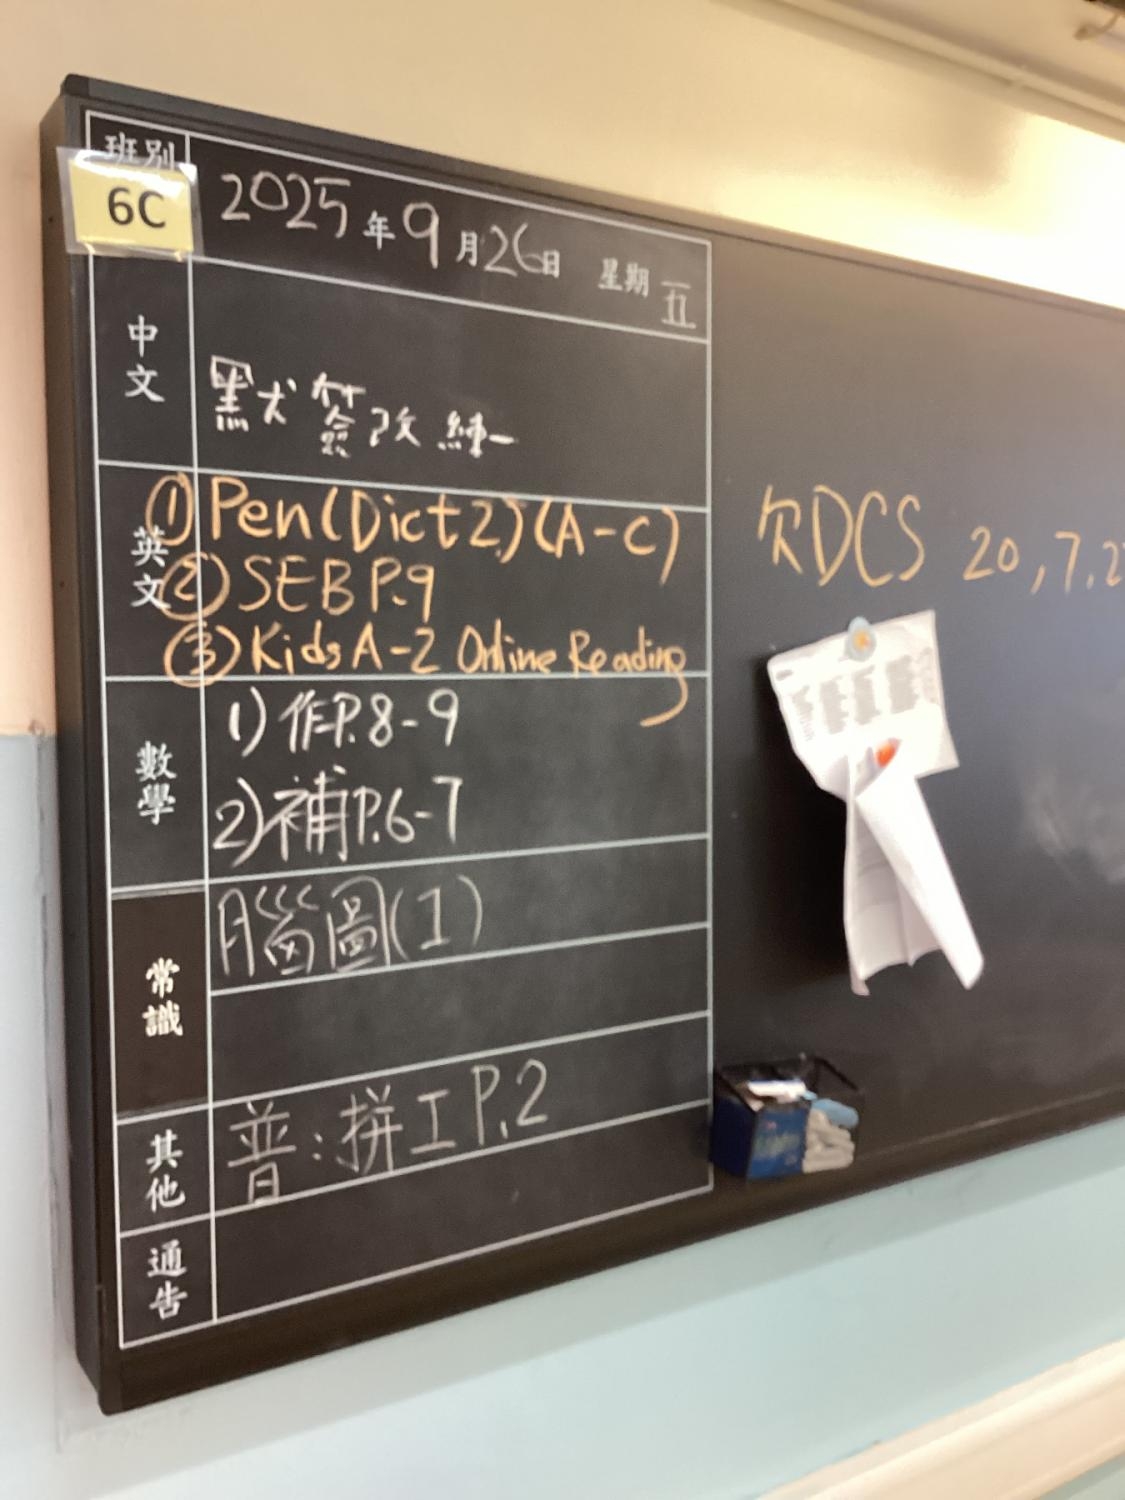 班別
6C
2025年9月26日 星期五
中文
默簽改練
英文
① Pen (Dict 2) (A-C)
② SEB P.9
③ Kids A-Z Online Reading
數學
1) 作P.8-9
2) 補P.6-7
常識
腦圖(1)
其他
普:拼工P.2
通告
欠DCS 20,7,2